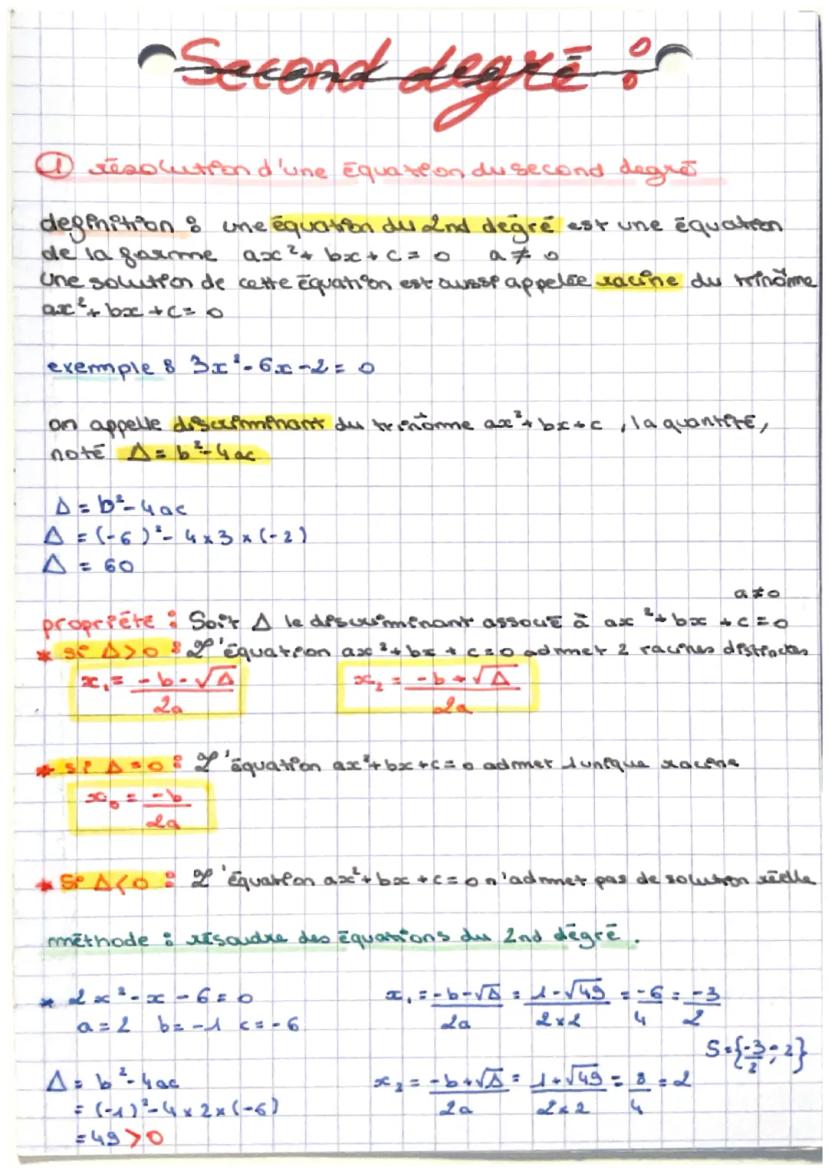 Second degré :
① résolution d'une équation du second degré
definition : une équation du 2nd degré est une équation
de la forme ax² + bx + c = 0 a ≠ 0
Une solution de cette équation est aussi appelée racine du trinôme
ax² + bx + c = 0
exemple : 3x² - 6x - 2 = 0
on appelle discriminant du trinôme ax² + bx + c, la quantité,
noté Δ = b² - 4ac
Δ = b² - 4ac
Δ = (-6)² - 4 x 3 x (-2)
Δ = 60
a ≠ 0
propriété : Soit Δ le discriminant associé à ax² + bx + c = 0
* si Δ > 0 : L'équation ax² + bx + c = 0 admet 2 racines distinctes
x₁ = (-b - √Δ)/2a x₂ = (-b + √Δ)/2a
* si Δ = 0 : L'équation ax² + bx + c = 0 admet 1 unique racine
x₀ = -b/2a
* Si Δ < 0 : L'équation ax² + bx + c = 0 n'admet pas de solution réelle
méthode : résoudre des équations du 2nd degré.
* 2x² - x - 6 = 0
a = 2 b = -1 c = -6
Δ = b² - 4ac
= (-1)² - 4 x 2 x (-6)
= 49 > 0
x₁ = (-b - √Δ)/2a = (1 - √49)/(2 x 2) = -6/4 = -3/2
x₂ = (-b + √Δ)/2a = (1 + √49)/(2 x 2) = 8/4 = 2
S = {-3/2 ; 2}